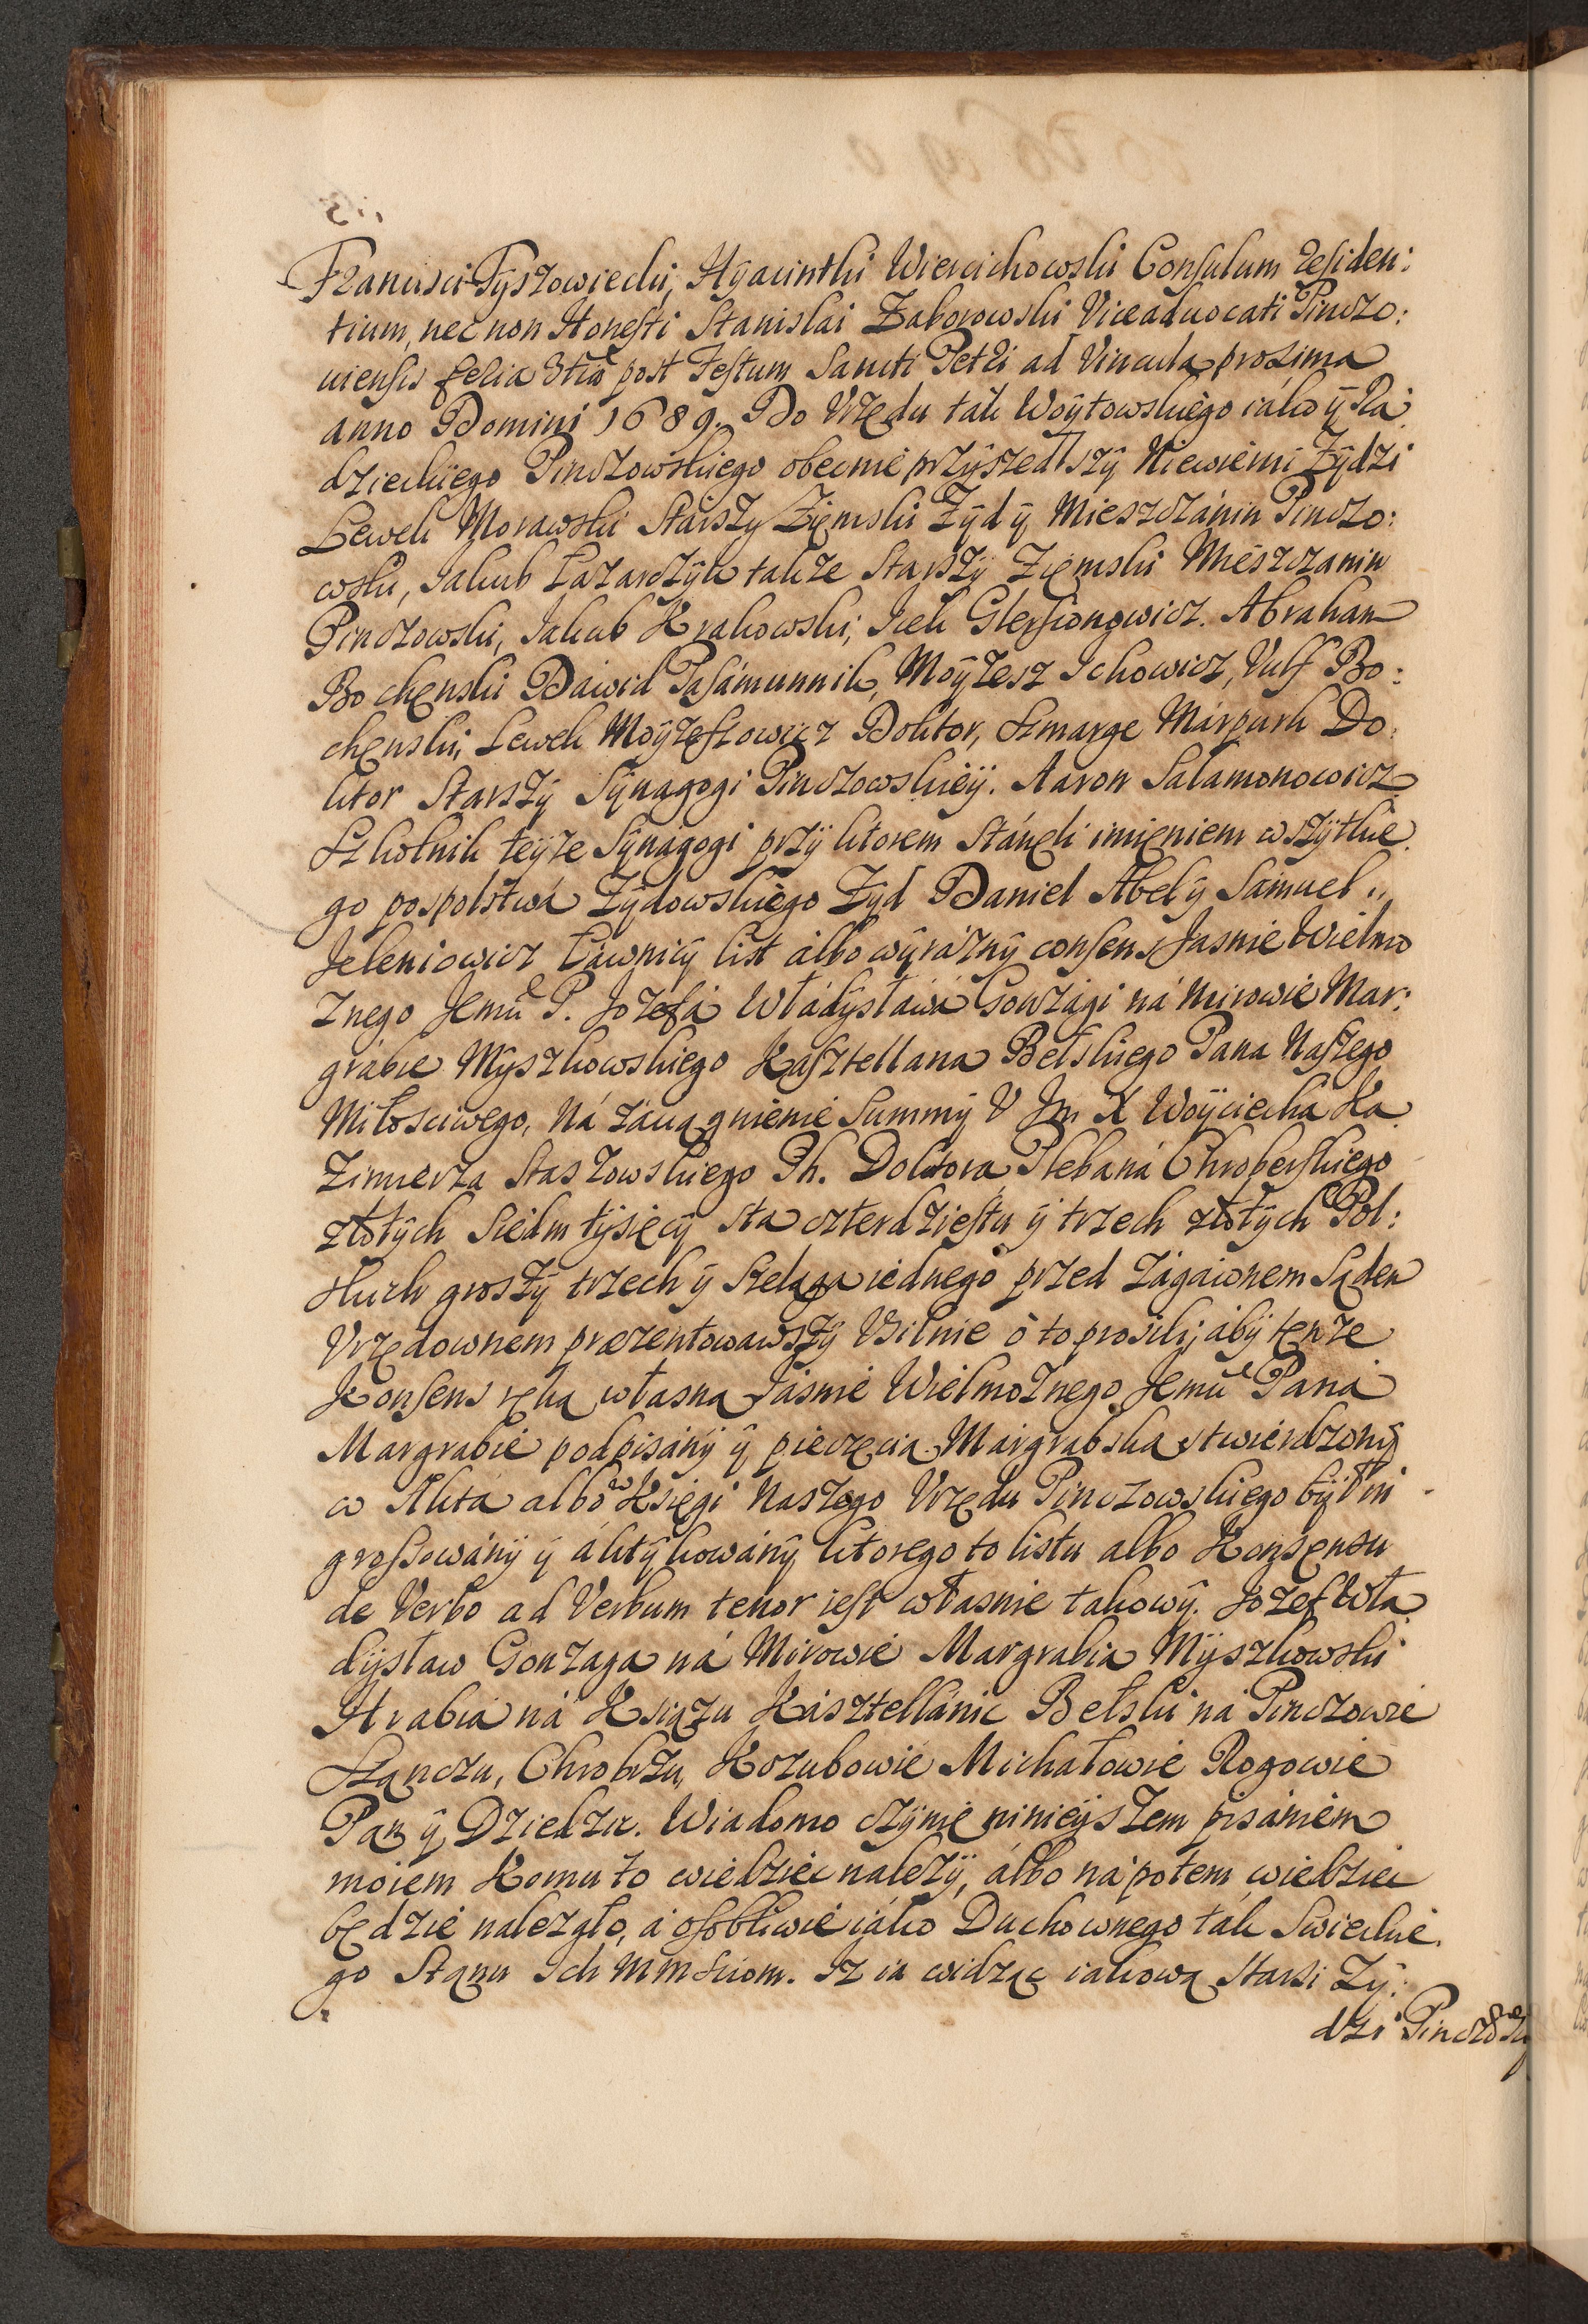 Francisci Tyszowiecki, Hyacinthi Wiercichowski Consulum residen:
tium, nec non Honesti Stanislai Zaborowski Viceadvocati Pinczo:
uiensis feria 3tia post Festum Sancti Petri ad Vincula proxima
anno Domini 1689. Do Vrzędu tak Woÿtowskiego iako ÿ Ra
dzieckiego Pinczowskiego obecnie przÿszedłszÿ Niewierni Żÿdzi
Lewek Morawski Starszy Ziemski Żÿd ÿ Mieszczánin Pinczo:
wski, Jakub Łazarczÿk także Starszÿ Ziemski Mieszczanin
Pinczowski, Jakub Krakowski, Icek Gierszonowicz. Abraham
Bochenski Dawid Pasámunnik, Moÿzesz Ickowicz, Vulf Bo:
chenski, Lewek Moÿzeszowicz Doktor, Szmarge Marpurk Do
ktor Starszÿ Sÿnagogi Pinczowskiëÿ. Aaron Salamonowicz
Szkolnik teÿże Sÿnágogi przÿ ktorem stánęli imięniem wszÿtkie
go pospolstwá Żÿdowskiego Żÿd Daniel Abel ÿ Sámuel
Jeleniowicz Ławnicÿ list álbo wÿráznÿ consens Jasnie Wielmo
znego Jemu P. Jozefá Włádÿsławá Gonzági ná Mirowie Mar:
grabie Mÿszkowskiego Kasztellana Bełskiego Pana Naszego
Miłosciwego, Ná záciągnienie Summÿ V Jm X Woÿciecha Ka
zimierza Staszowskiego Ph. Doktora Plebaná Chroberskiego
złotÿch siedm tÿsięcÿ sta czterdziestu ÿ trzech złotÿch Pol:
skich groszÿ trzech ÿ szelągá iednego przed zágaionem Sądem
Vrzędownem prezentowawszÿ Vsilnie o to prosili, abÿ tenże
Konsens ręką własną Jásnie Wielmożnego Jemu Paná
Margrabie podpisánÿ ÿ pieczęcią Márgrabską stwierdzonÿ
w Akta albo w Księgi Naszego Vrzędu Pinczowskiego bÿł in
grossowánÿ ÿ áktÿkowánÿ ktorego to listu albo Konsensu
de Verbo ad Verbum tenor iest własnie takowÿ. Jozef Wła
dÿsław Gonzaga ná Mirowie Margrabia Mÿszkowski
Hrabia ná Xsiążu Kásztellánic Bełski ná Pinczowie
Szanczu, Chrobrzu, Kozubowie Michałowie Rogowie
Pan ÿ Dziedzic. Wiadomo czÿnię ninieÿszem pisániem
moiem Komu to wiedziec nalezÿ, álbo nápotem wiedziec
będzie nalezało, á osobliwie iáko Duchownego ták Swieckie
go Stanu Ich MMściom. Iz ia widząc iakową Starsi Zÿ:
dzi Pinczo